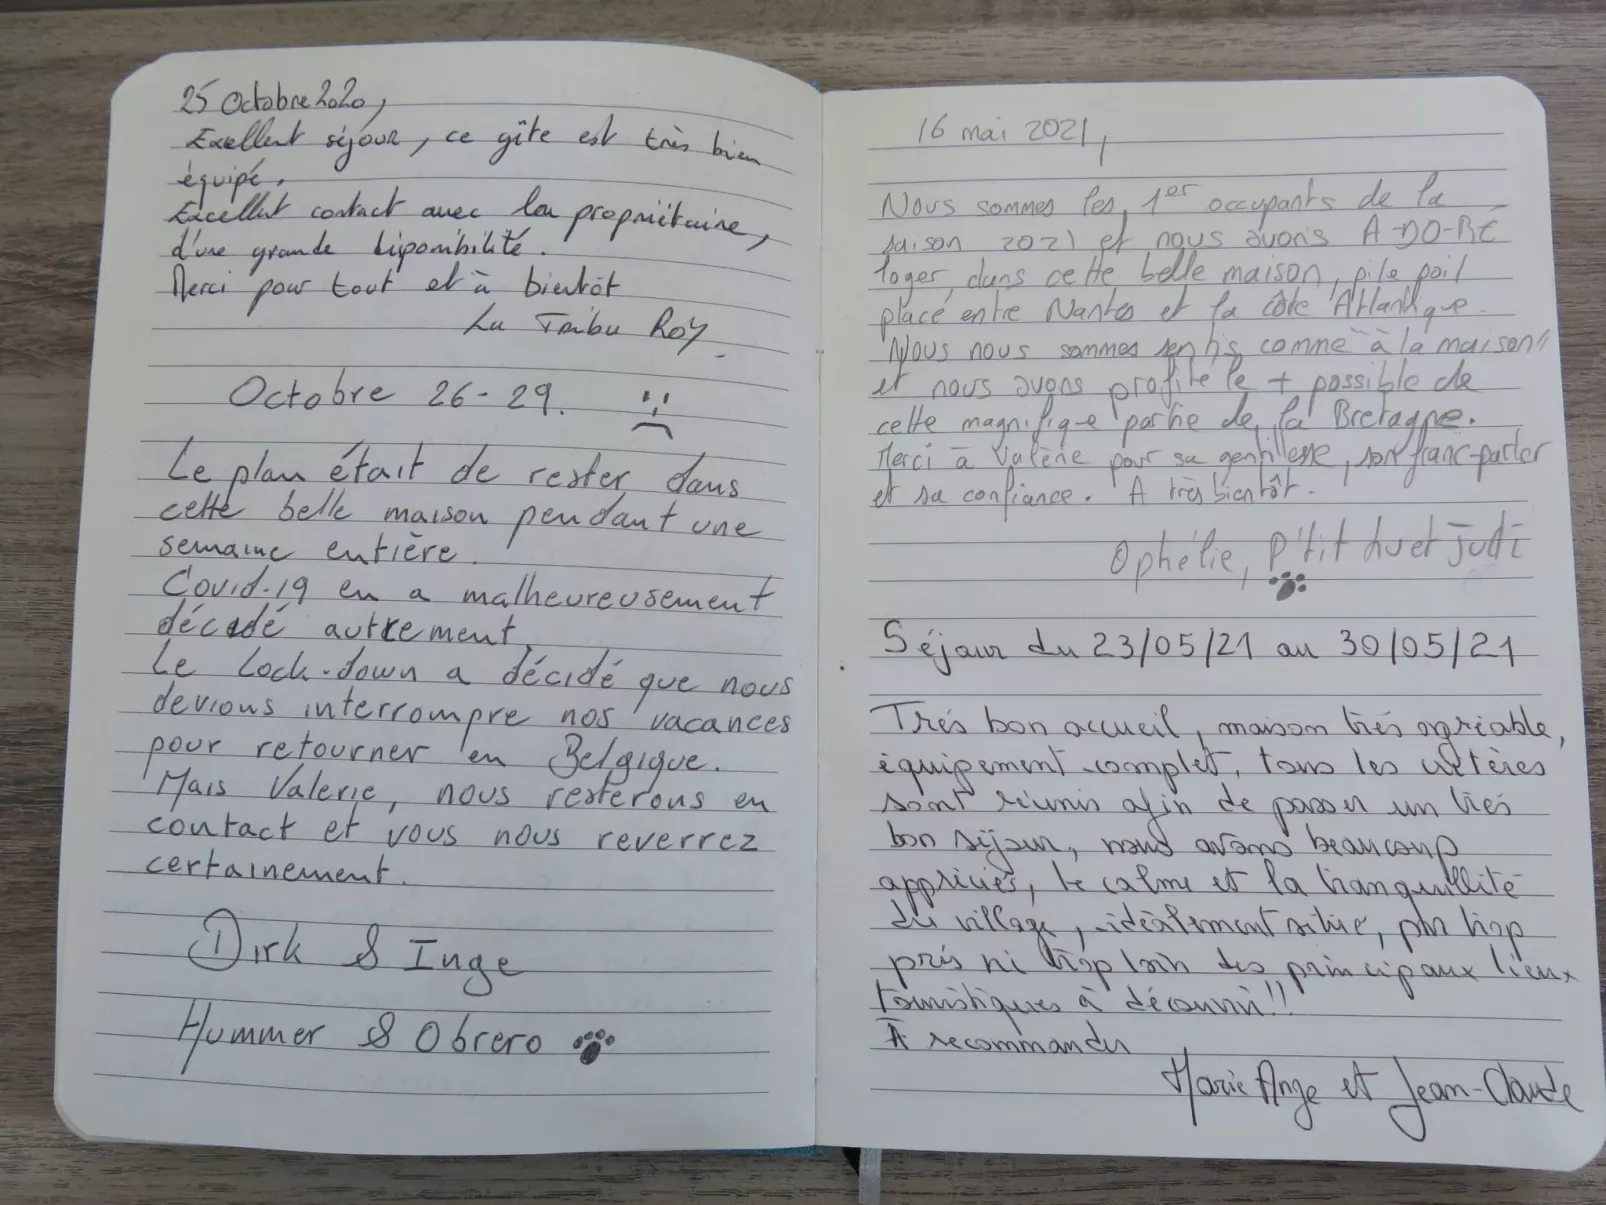 25 Octobre 2020,
Excellent séjour, ce gîte est très bien
équipé.
Excellent contact avec la propriétaire,
d'une grande diponibilité.
Merci pour tout et à bientôt
La Tribu Roy.
Octobre 26-29.
Le plan était de rester dans
cette belle maison pendant une
semaine entière.
Covid-19 en a malheureusement
décidé autrement.
Le Lock-down a décidé que nous
devions interrompre nos vacances
pour retourner en Belgique.
Mais Valerie, nous resterons en
contact et vous nous reverrez
certainement.
Dirk & Inge
Hummer & Obrero
16 mai 2021,
Nous sommes les 1er occupants de la
saison 2021 et nous avons A-DO-RÉ
loger dans cette belle maison, pile poil
placé entre Nantes et la côte Atlantique.
Nous nous sommes sentis comme "à la maison"
et nous avons profité le + possible de
cette magnifique partie de la Bretagne.
Merci à Valérie pour sa gentillesse, son franc-parler
et sa confiance. A très bientôt.
Ophélie, P'tit Lu et Judi
Séjour du 23/05/21 au 30/05/21
Très bon accueil, maison très agréable,
équipement complet, tous les critères
sont réunis afin de passer un très
bon séjour, nous avons beaucoup
appréciés, le calme et la tranquillité
du village, idéalement situé, pas trop
près ni trop loin des principaux lieux
touristiques à découvrir!!
A recommander
Marie Ange et Jean-Claude